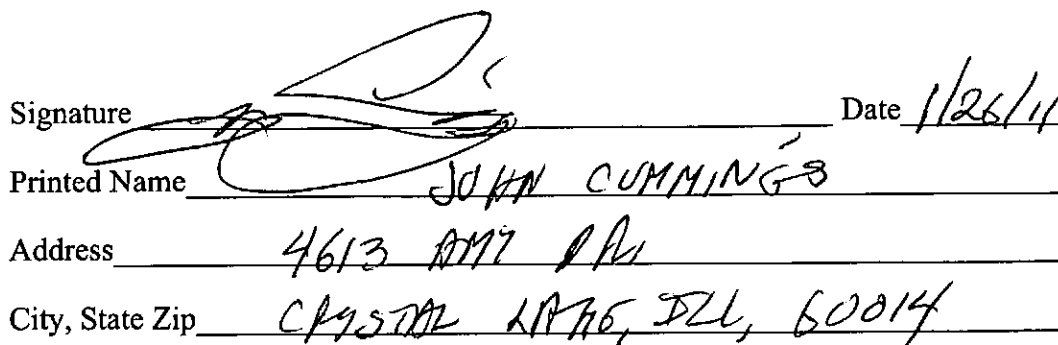 Signature Date 1/26/11
Printed Name JOHN CUMMINGS
Address 4613 AMY DR.
City, State Zip CRYSTAL LAKE, ILL, 60014